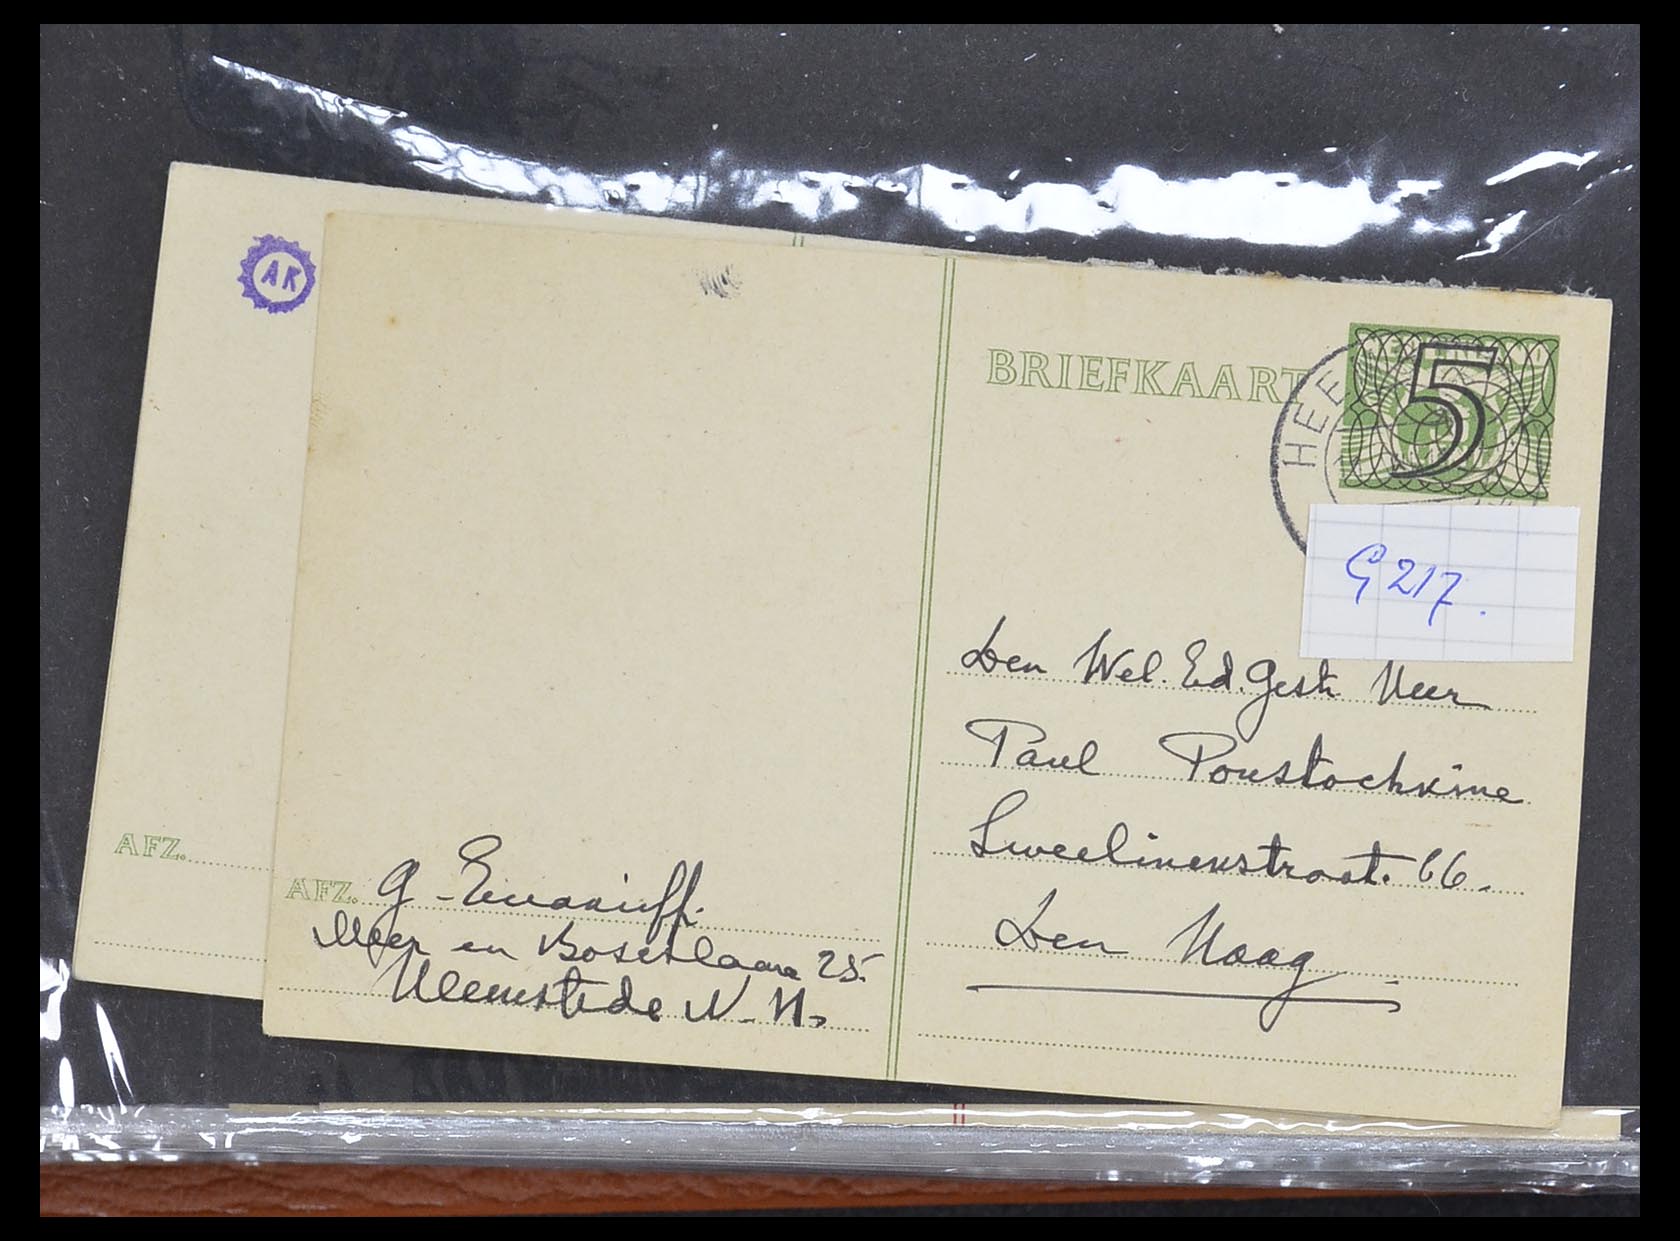 AK
BRIEFKAART
HEE
5
G 217.
Den Wel. Ed. Gestr Heer
Paul Poustochkine
Sweelinckstraat. 66.
Den Haag
AFZ.
AFZ. G.
Meer en Boschlaan 25.
Heemstede N-H.